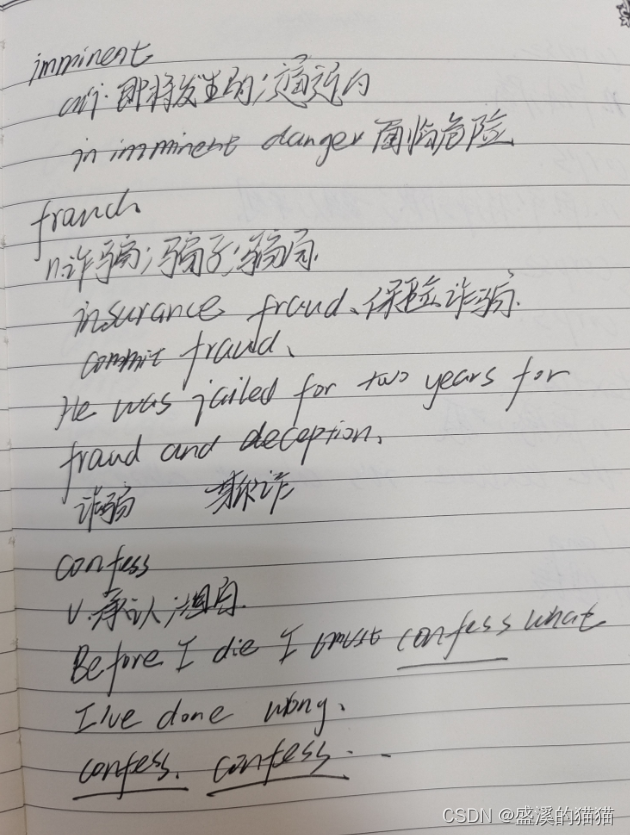 imminent
adj. 即将发生的；逼近的
in imminent danger 面临危险
fraud.
n.诈骗；骗子；骗局.
insurance fraud、保险诈骗.
commit fraud、
He was jailed for two years for
fraud and deception.
诈骗 欺诈
confess
v.承认；坦白.
Before I die I must confess what
I've done wrong.
confess. confess...
CSDN @盛溪的猫猫